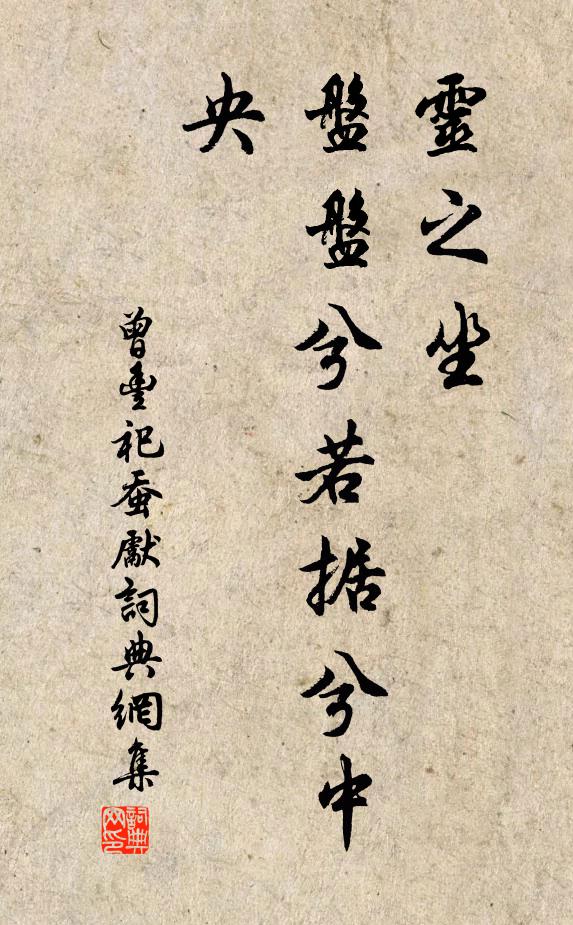 靈之坐
盤盤兮若据兮中
央
曾豊祀蚕獻詞典網集
詞典
网印